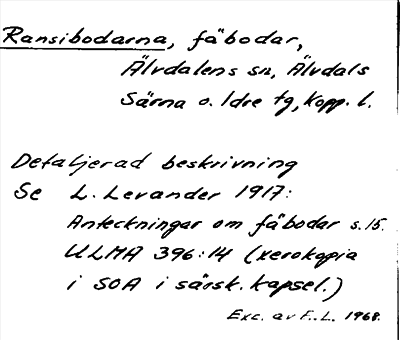 Ransibodarna, fäbodar,
Älvdalens sn, Älvdals
Särna o. Idre tg, Kopp. l.
Detaljerad beskrivning
Se L. Levander 1917:
Anteckningar om fäbodar s. 15.
ULMA 396:14 (xerokopia
i SOA i särsk. kapsel.)
Exc. av F.L. 1968.